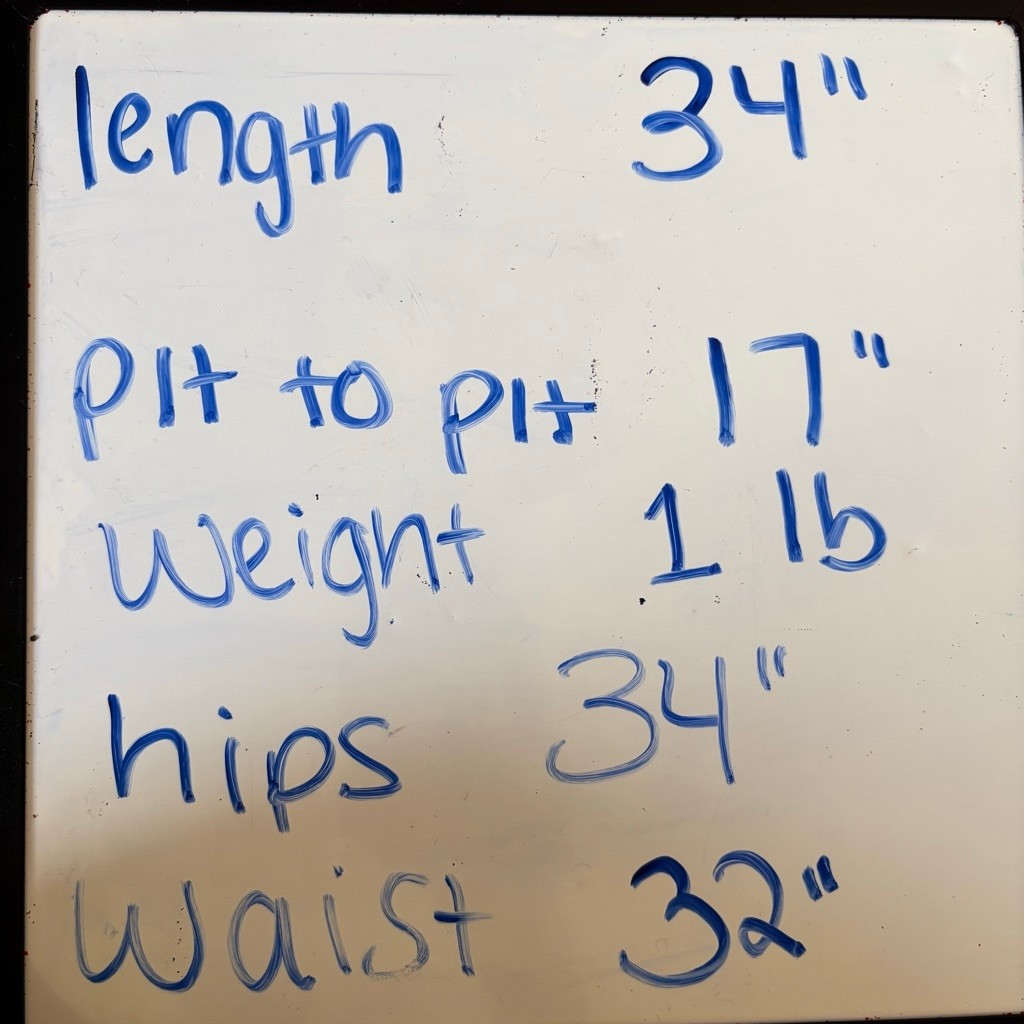 length 34"
pit to pit 17"
Weight 1 lb
hips 34"
Waist 32"